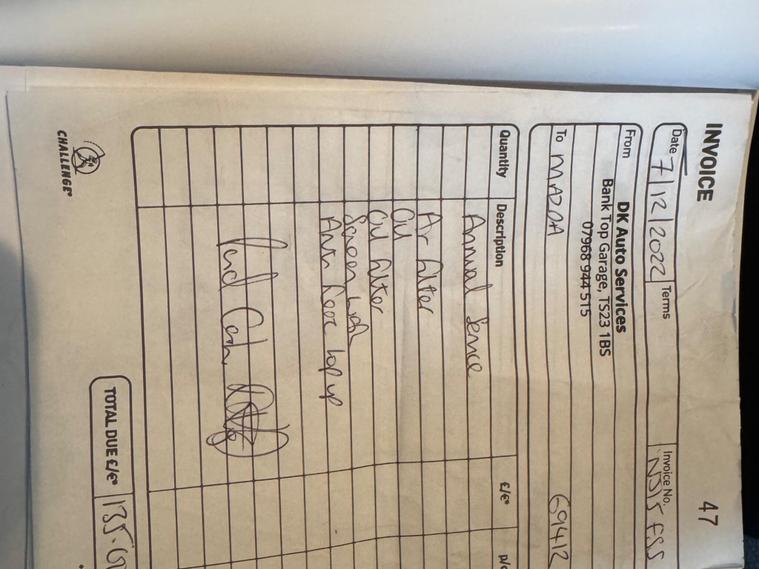 INVOICE
47
Date 7/12/2022
Terms
Invoice No. NJ15 FSS
From
DK Auto Services
Bank Top Garage, TS23 1BS
07968 944 515
To MAZDA
69412
Quantity Description £/€ p/c
Annual Service
Air filter
Oil
Oil filter
Screen wash
Anti freeze top up
Paid Cash
TOTAL DUE £/€ 135.
CHALLENGE